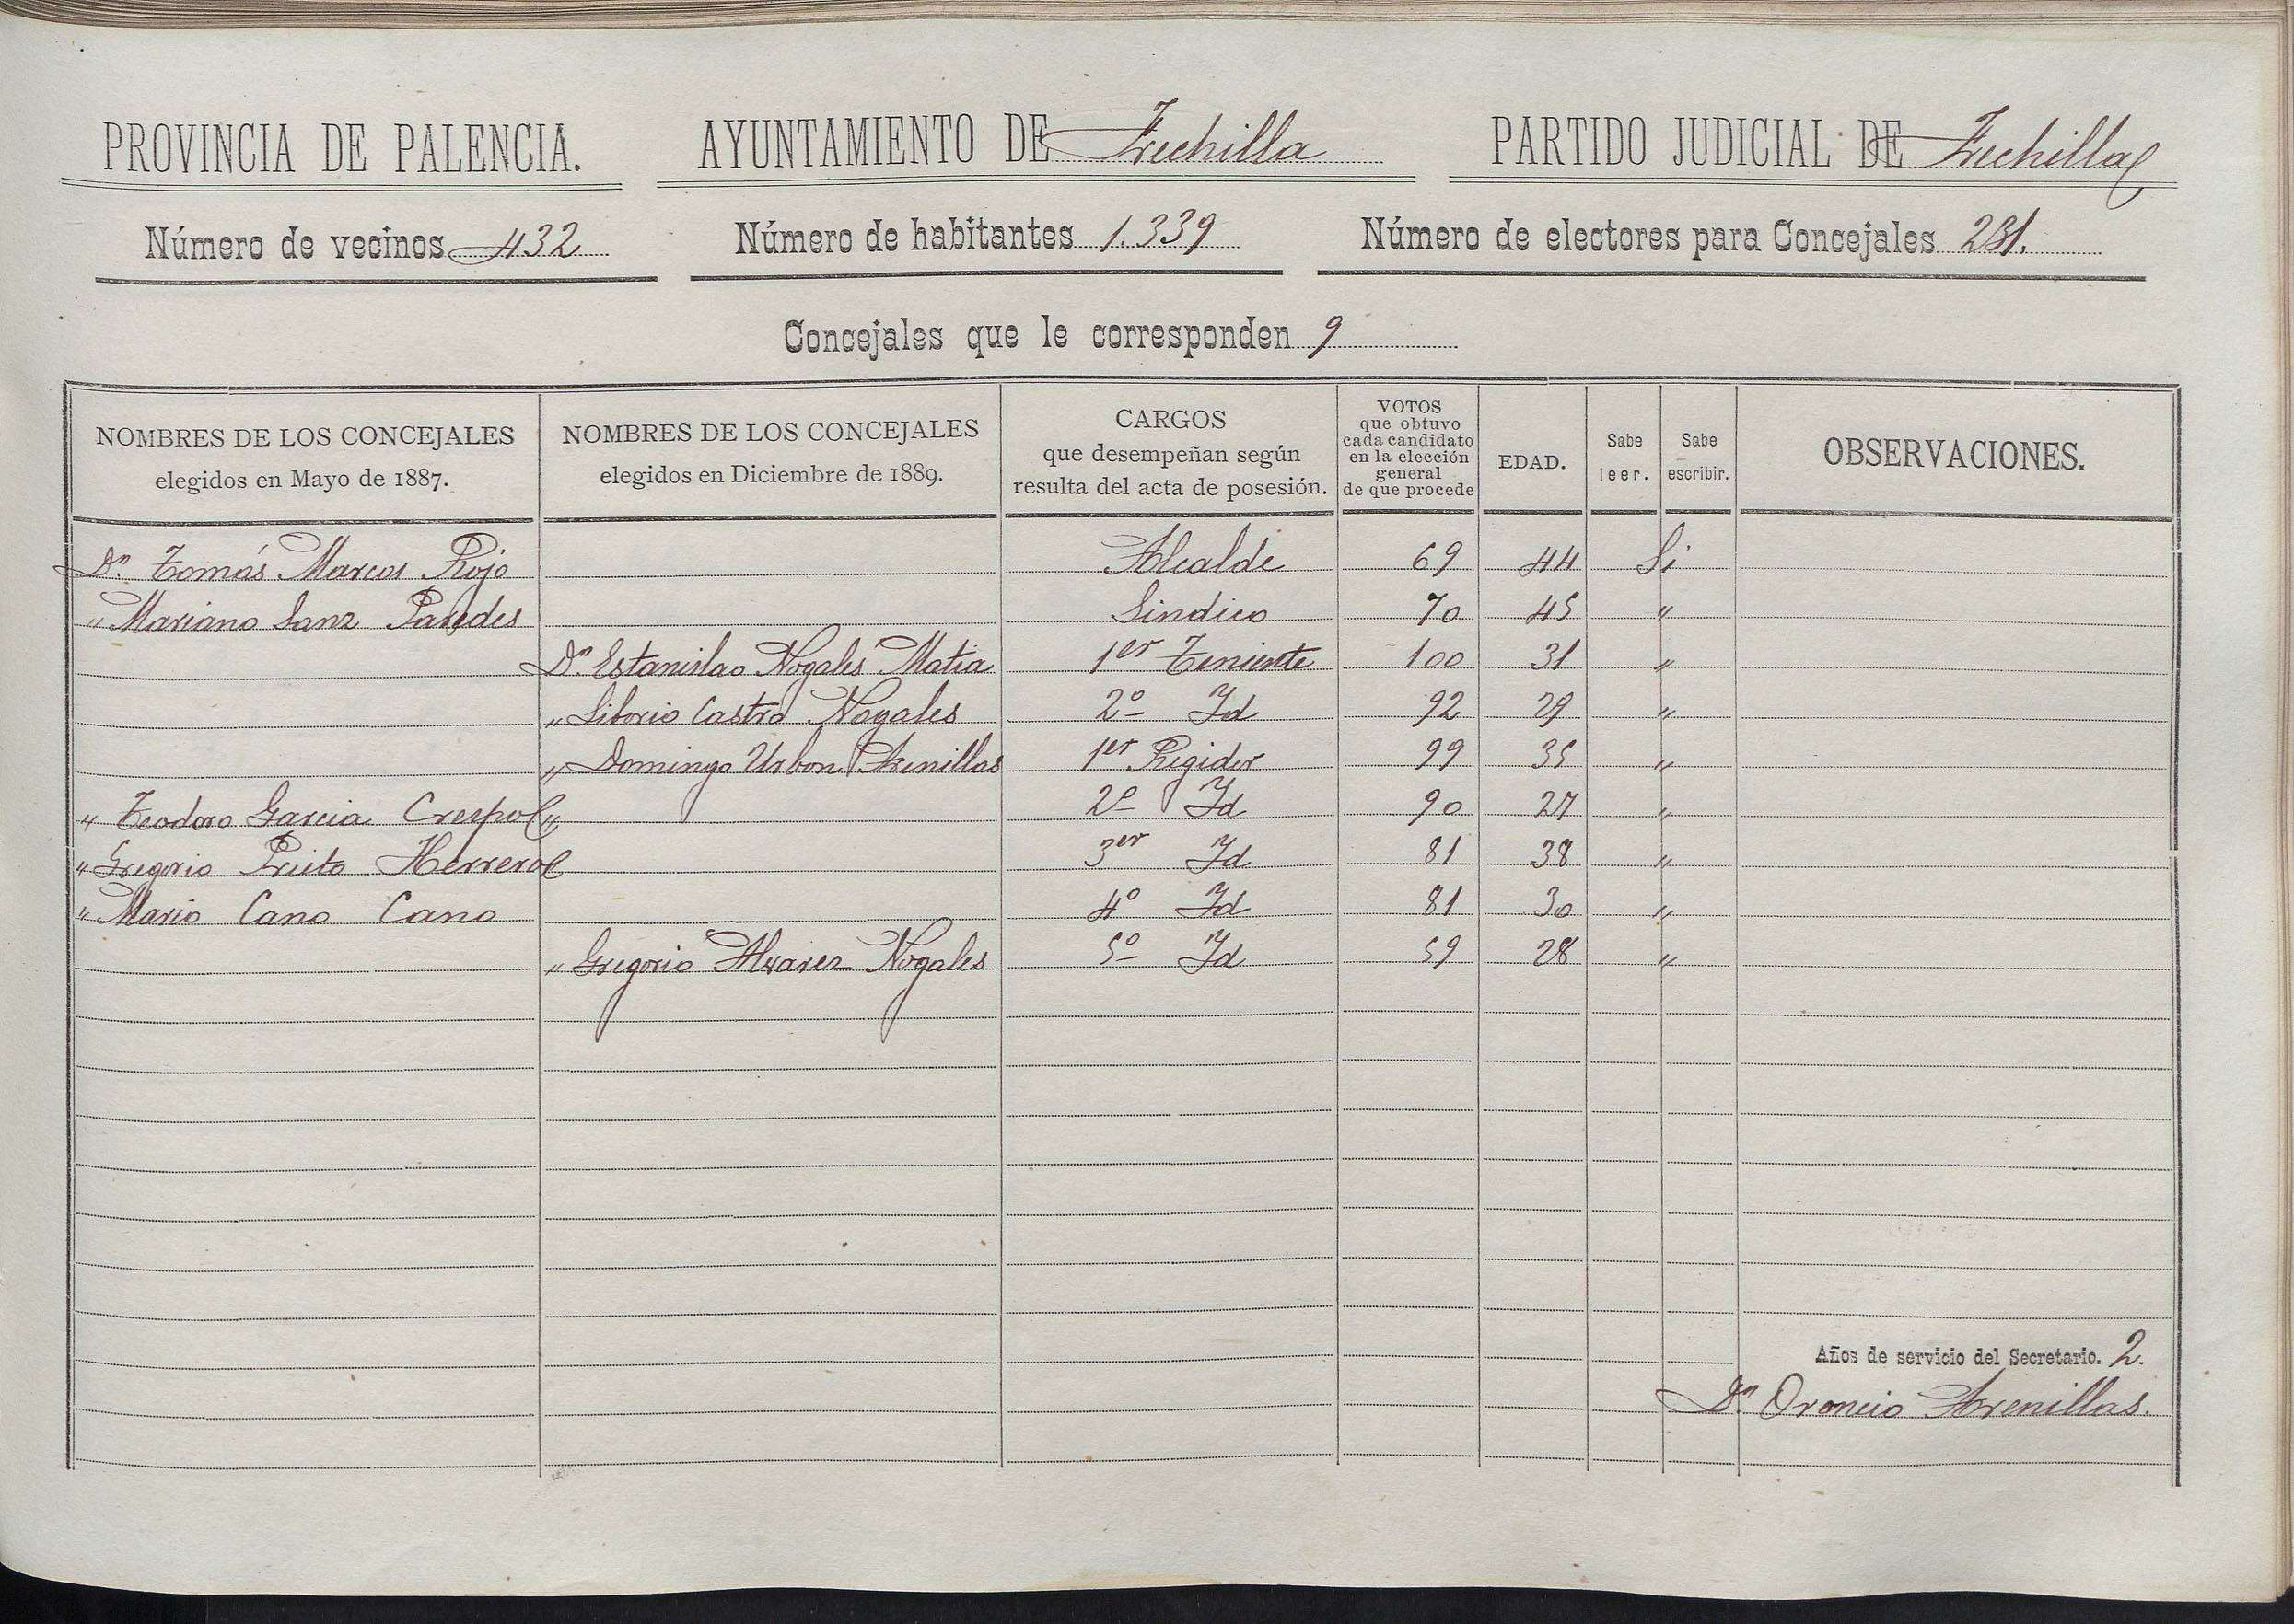 PROVINCIA DE PALENCIA. AYUNTAMIENTO DE Frechilla PARTIDO JUDICIAL DE Frechilla
Número de vecinos 432 Número de habitantes 1.339 Número de electores para Concejales 231.
Concejales que le corresponden 9
NOMBRES DE LOS CONCEJALES
elegidos en Mayo de 1887.
NOMBRES DE LOS CONCEJALES
elegidos en Diciembre de 1889.
CARGOS
que desempeñan según
resulta del acta de posesión.
VOTOS
que obtuvo
cada candidato
en la elección
general
de que procede
EDAD.
Sabe
leer.
Sabe
escribir.
OBSERVACIONES.
Dn. Tomás Marcos Rojo Alcalde 69 44 Si
" Mariano Sanz Paredes Sindico 70 45 "
Dn. Estanislao Nogales Matia 1er Teniente 100 31 "
" Liborio Castro Nogales 2º Id 92 29 "
" Domingo Urbon Arenillas 1er Regidor 99 35 "
" Teodoro Garcia Crespo " 2º Id 90 27 "
" Gregorio Prieto Herrero 3er Id 81 38 "
" Mario Cano Cano 4º Id 81 30 "
" Gregorio Alvarez Nogales 5º Id 59 28 "
Años de servicio del Secretario. 2.
Dn. Oroncio Arenillas.